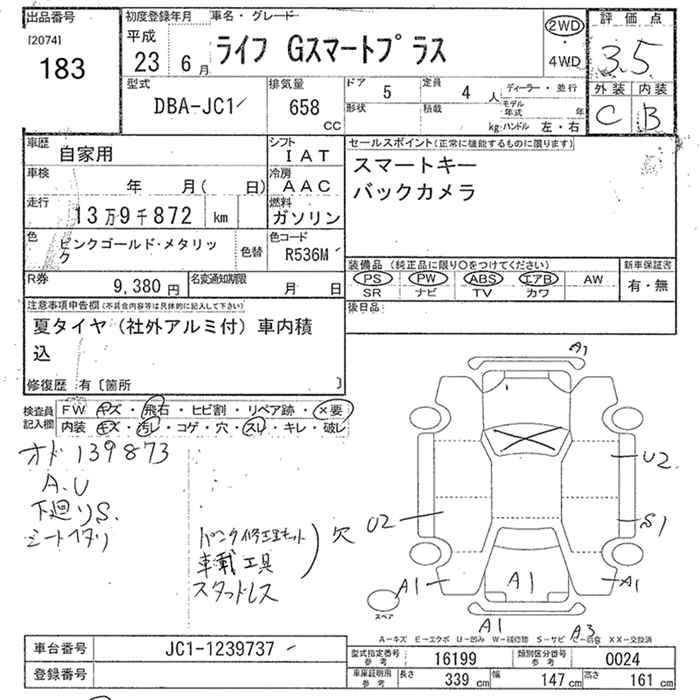 出品番号 初度登録年月 車名・グレード 評価点
[2074] 平成 2WD
183 23 6月 ライフ Gスマートプラス ・ 3.5
4WD
型式 排気量 ドア 定員 ディーラー・並行 外装 内装
DBA-JC1 658 CC 5 4人 モデル年式 年 C B
形状 積載 kg ハンドル 左・右
車歴 シフト セールスポイント(正常に機能するものに限ります)
自家用 IAT スマートキー
車検 年 月( 日) 冷房 AAC バックカメラ
走行 13万9千872 km 燃料 ガソリン
色 ピンクゴールド・メタリック 色替 色コード R536M
装備品 (純正品に限り○をつけてください) 新車保証書
PS PW ABS エアB AW 有・無
SR ナビ TV カワ
R券 9,380円 名変通知期限 月 日 後日品:
注意事項申告欄(不具合内容等は具体的に記入して下さい)
夏タイヤ(社外アルミ付)車内積
込
修復歴 有〔箇所 〕
検査員記入欄 FW キズ・飛石・ヒビ割・リペア跡・×要
内装 キズ・汚レ・コゲ・穴・スレ・キレ・破レ
オド 139873
A.U
下廻りS.
シートヘタリ
パンク修理キット
車載工具 欠
スタッドレス
A1
U2
U2 S1
A1 A1 A1
スペア
A1 A3
A-キズ E-エクボ U-凹み W-補修跡 S-サビ C-腐食 XX-交換済
車台番号 JC1-1239737
型式指定番号 参考 16199 類別区分番号 参考 0024
登録番号
車庫証明用 参考 長さ 339 cm 幅 147 cm 高さ 161 cm